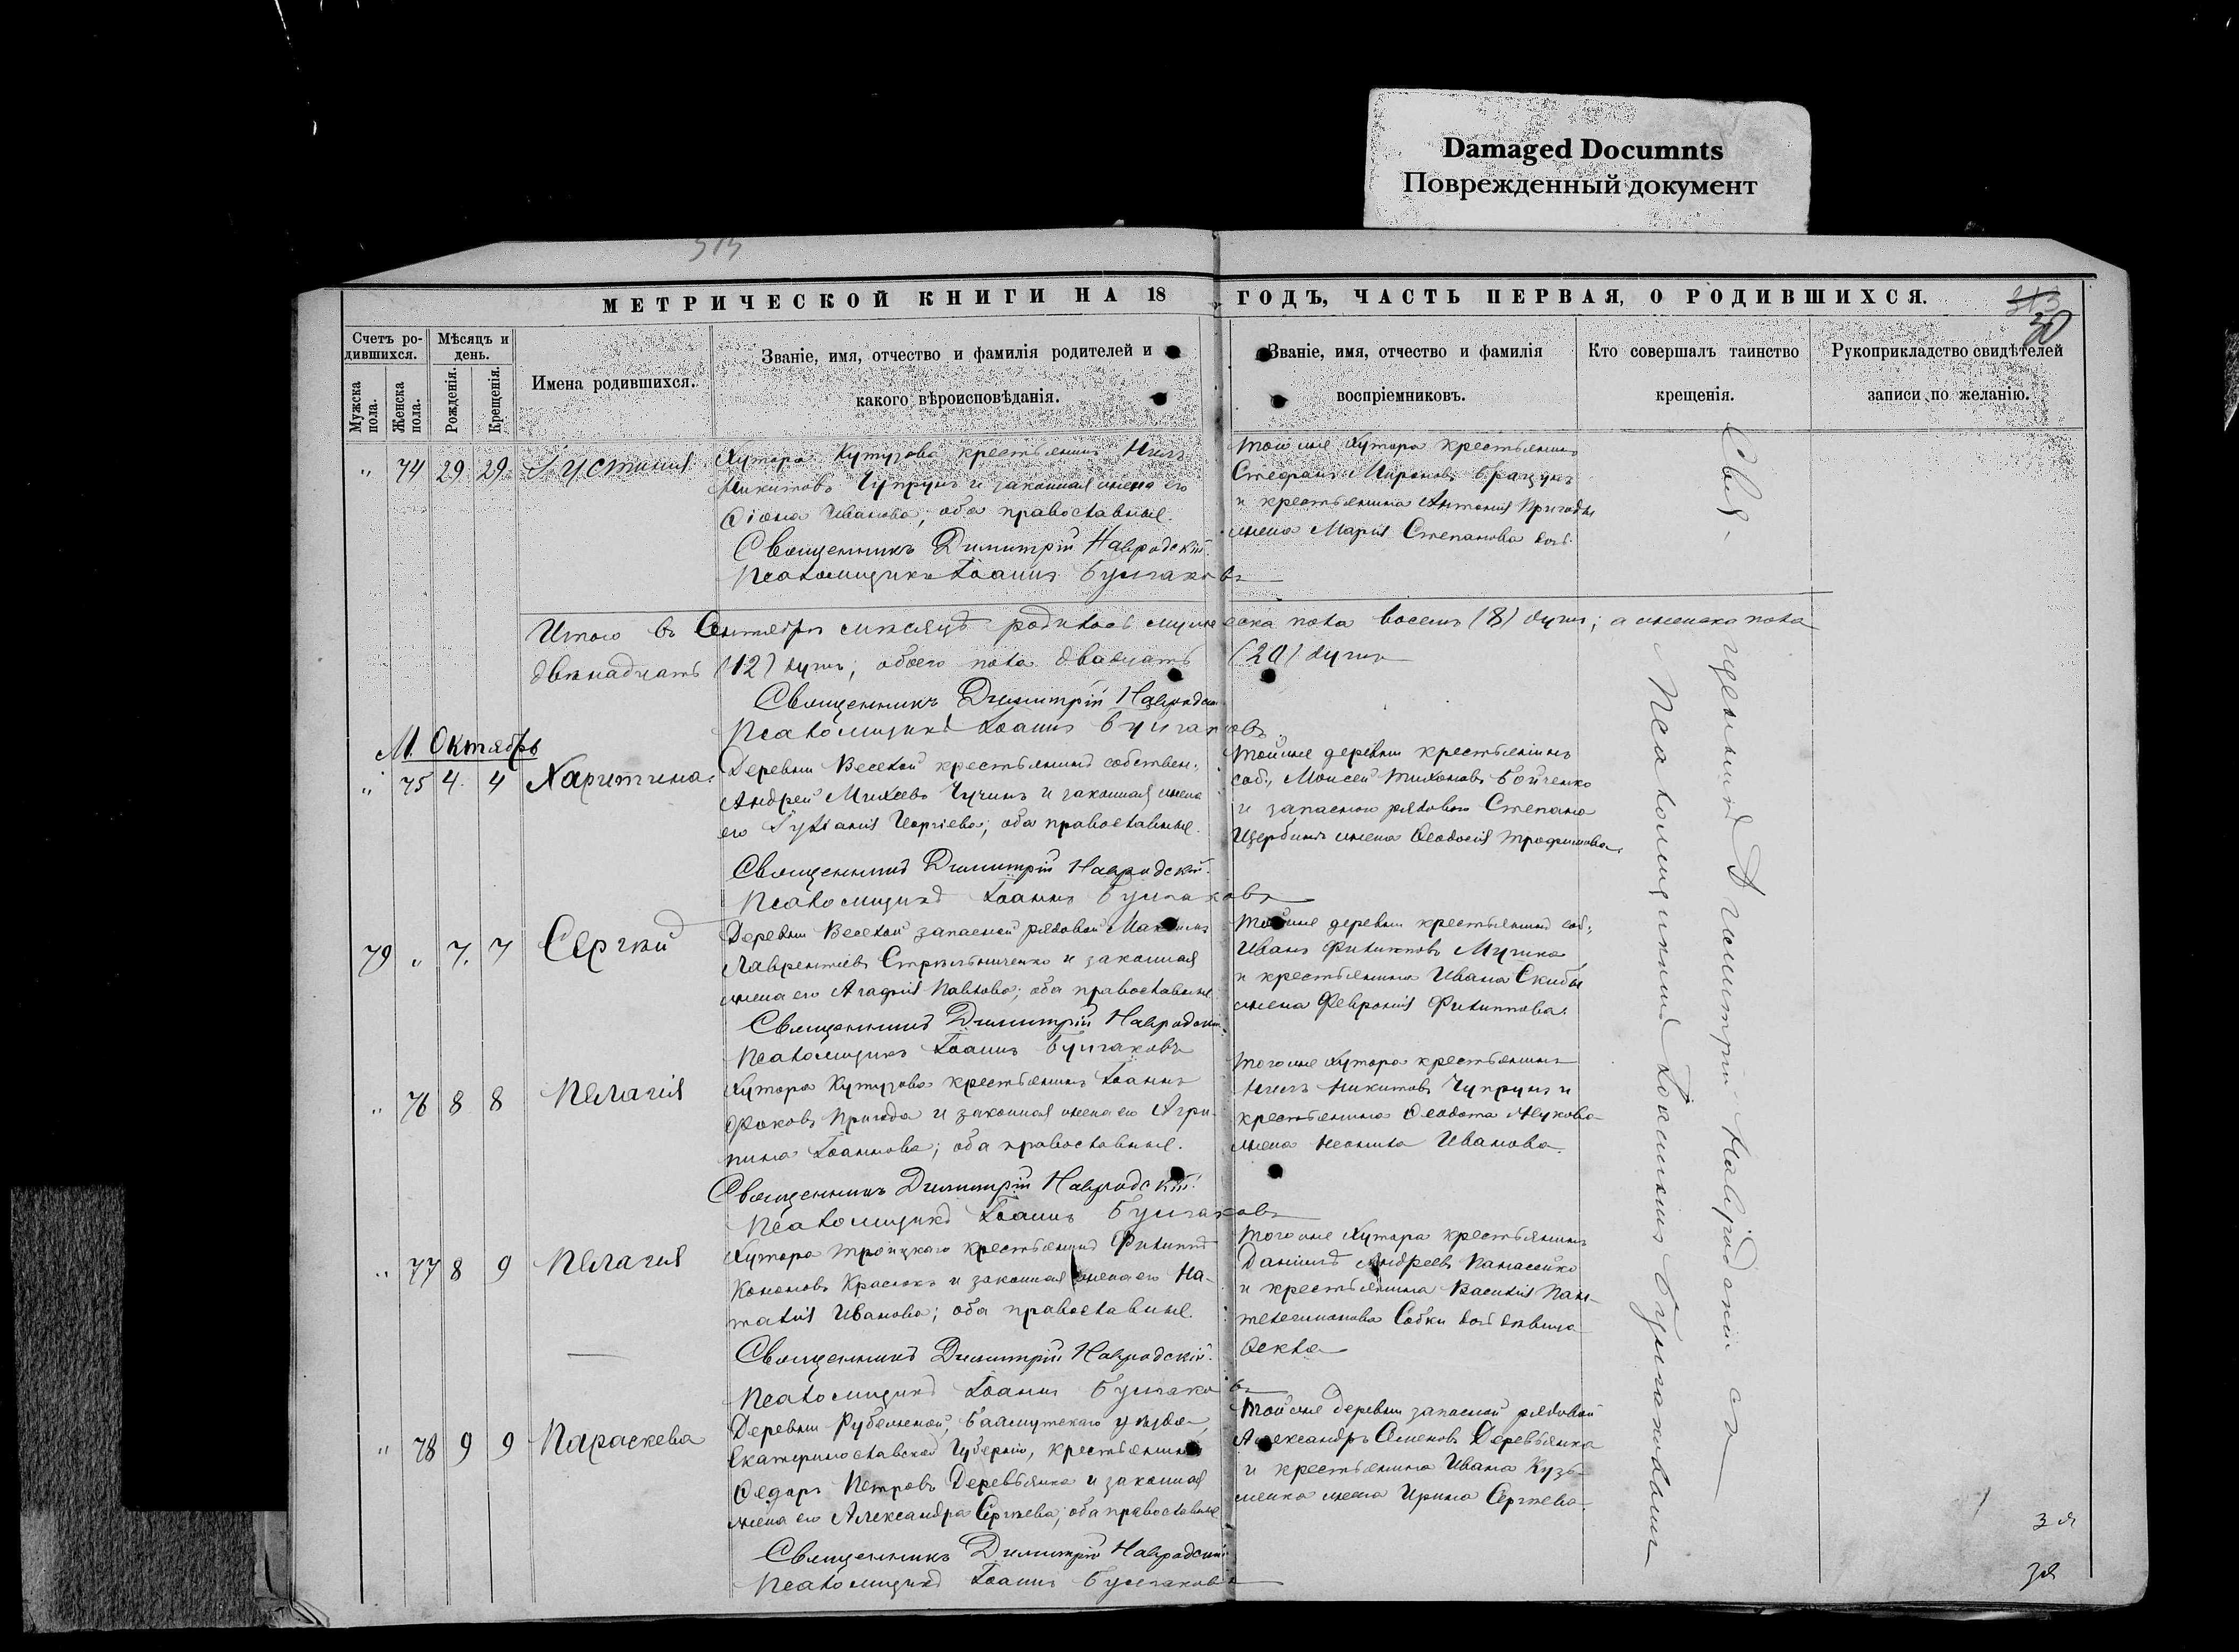 Damaged Documnts
Поврежденный документ
313
МЕТРИЧЕСКОЙ КНИГИ НА 18 ГОДЪ, ЧАСТЬ ПЕРВАЯ, О РОДИВШИХСЯ.
313
30
Счетъ ро-
дившихся.
Мужска пола.
Женска пола.
Мѣсяцъ и
день.
Рожденія.
Крещенія.
Имена родившихся.
Званіе, имя, отчество и фамилія родителей и
какого вѣроисповѣданія.
Званіе, имя, отчество и фамилія
воспріемниковъ.
Кто совершалъ таинство
крещенія.
Рукоприкладство свидѣтелей
записи по желанію.
" 74 29 29 Іустинія
Хутора Кутузова крестьянинъ
Никитовъ Чупрунъ и законная жена его
Ѳіона Иванова; оба православные.
Священникъ Димитрій Навродскій.
Псаломщикъ Іоаннъ Булгаковъ
того же хутора крестьянинъ
Стефанъ Мироновъ
и крестьянина Антонія Пригоды
жена Марія Степанова
Итого въ Сентябрѣ мѣсяцѣ родилось мужеска пола восемь (8) душъ; а женска пола
двѣнадцать (12) душъ; обоего пола двадцать (20) душъ
Священникъ Димитрій Навродскій
Псаломщикъ Іоаннъ Булгаковъ
М. Октябрь
" 75 4. 4 Харитина.
Деревни Веселой крестьянинъ собствен.
Андрей Михеевъ и законная жена
его Іуліанія Георгіева; оба православные.
Священникъ Димитрій Навродскій.
Псаломщикъ Іоаннъ Булгаковъ
той же деревни крестьянинъ
соб., Моисей Тихоновъ Бойченко
и запасного рядового Степана
Щербины жена Ѳеодосія Трофимова.
79 " 7. 7 Сергій
Деревни Веселой запасной рядовой Максимъ
Лаврентіевъ Стрѣльниченко и законная
жена его Агафія Павлова; оба православные
Священникъ Димитрій Навродскій.
Псаломщикъ Іоаннъ Булгаковъ
той же деревни крестьянинъ соб.,
Иванъ Филипповъ
и крестьянина Ивана Скибы
жена Февронія Филиппова.
" 76 8 8 Пелагія
Хутора Кутузова крестьянинъ Іоаннъ
Фоковъ Пригода и законная жена его Агри-
пина Іоаннова; оба православные.
Священникъ Димитрій Навродскій.
Псаломщикъ Іоаннъ Булгаковъ
того же хутора крестьянинъ
Никитовъ Чупрунъ и
крестьянина Ѳеодота
жена Неонила Иванова.
" 77 8 9 Пелагія
Хутора Троицкаго крестьянинъ Филиппъ
Кононовъ Краснокъ и законная жена его На-
талія Иванова; оба православные.
Священникъ Димитрій Навродскій.
Псаломщикъ Іоаннъ Булгаковъ
того же хутора крестьянинъ
Даніилъ Андреевъ Панасенко
и крестьянина Василія Пан-
телеимонова дѣвица
Ѳекла
" 78 9 9 Параскева
Деревни Рубежной, Бахмутскаго уѣзда,
Екатеринославской Губерніи, крестьянинъ
Ѳедоръ Петровъ Деревьянка и законная
жена его Александра Сергѣева; оба православные
Священникъ Димитрій Навродскій
Псаломщикъ Іоаннъ Булгаковъ
той же деревни запасной рядовой
Александръ Семеновъ Деревьянка
и крестьянина Ивана Кузь-
менка жена Ирина Сергѣева.
Свя-
щенникъ Димитрій Навродскій съ
Псаломщикомъ Іоанномъ Булгаковымъ